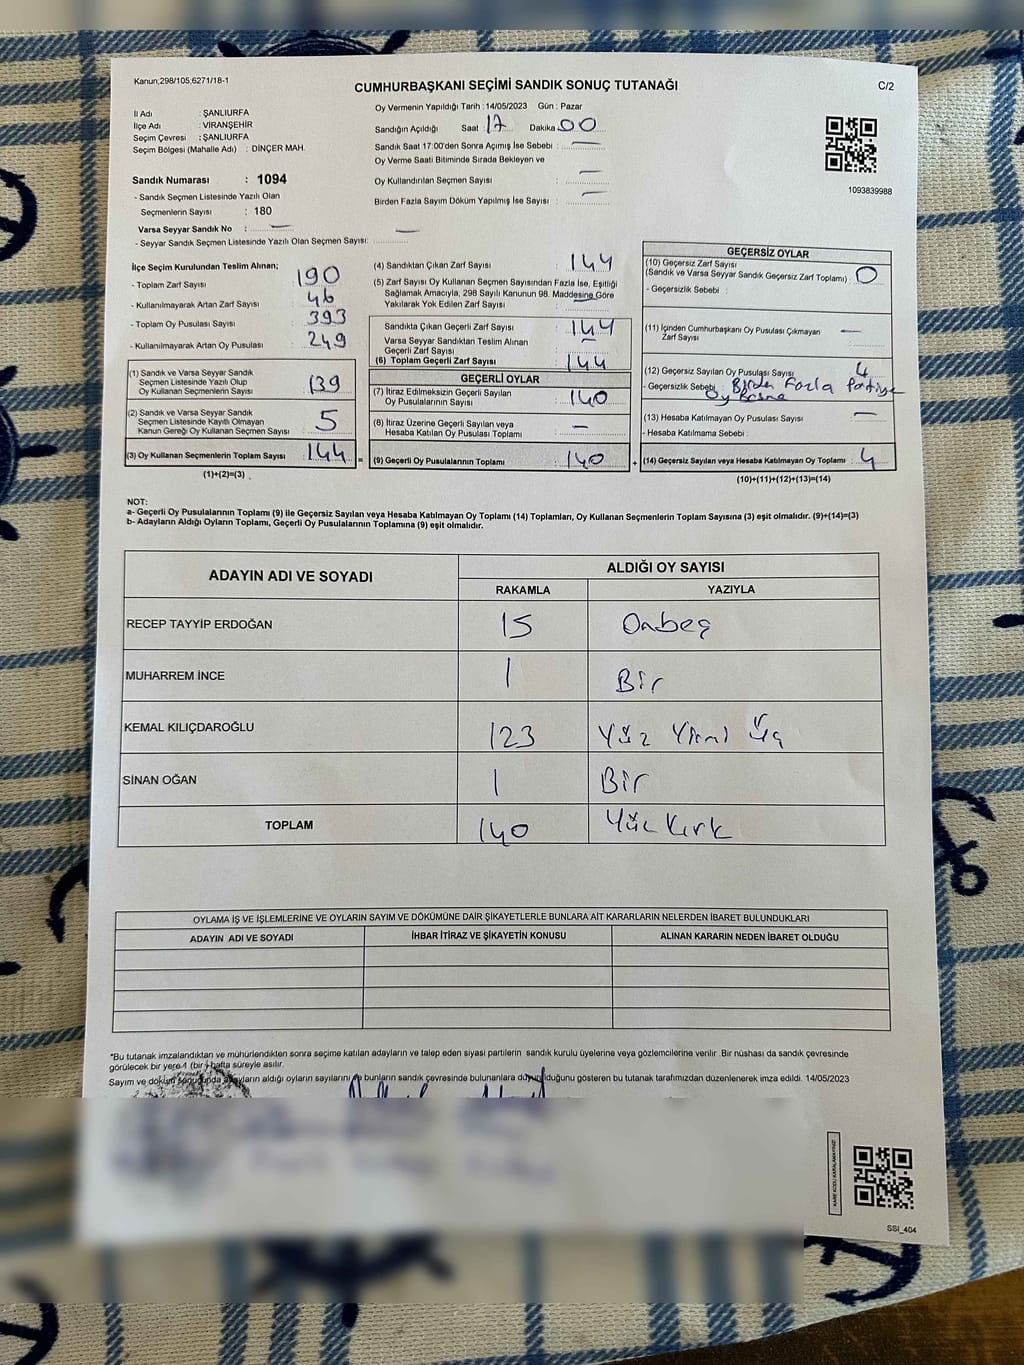 Kanun;298/105,6271/18-1
CUMHURBAŞKANI SEÇİMİ SANDIK SONUÇ TUTANAĞI
C/2
İl Adı : ŞANLIURFA
İlçe Adı : VİRANŞEHİR
Seçim Çevresi : ŞANLIURFA
Seçim Bölgesi (Mahalle Adı) : DİNÇER MAH.
Sandık Numarası : 1094
- Sandık Seçmen Listesinde Yazılı Olan
Seçmenlerin Sayısı : 180
Varsa Seyyar Sandık No : —
- Seyyar Sandık Seçmen Listesinde Yazılı Olan Seçmen Sayısı: —
Oy Vermenin Yapıldığı Tarih :14/05/2023 Gün : Pazar
Sandığın Açıldığı Saat 17 Dakika 00
Sandık Saat 17:00'den Sonra Açımış İse Sebebi : —
Oy Verme Saati Bitiminde Sırada Bekleyen ve
Oy Kullandırılan Seçmen Sayısı : —
Birden Fazla Sayım Döküm Yapılmış İse Sayısı : —
1093839988
İlçe Seçim Kurulundan Teslim Alınan;
- Toplam Zarf Sayısı : 190
- Kullanılmayarak Artan Zarf Sayısı : 46
- Toplam Oy Pusulası Sayısı : 393
- Kullanılmayarak Artan Oy Pusulası : 249
(1) Sandık ve Varsa Seyyar Sandık
Seçmen Listesinde Yazılı Olup
Oy Kullanan Seçmenlerin Sayısı : 139
(2) Sandık ve Varsa Seyyar Sandık
Seçmen Listesinde Kayıtlı Olmayan
Kanun Gereği Oy Kullanan Seçmen Sayısı : 5
(3) Oy Kullanan Seçmenlerin Toplam Sayısı : 144 =
(1)+(2)=(3)
(4) Sandıktan Çıkan Zarf Sayısı : 144
(5) Zarf Sayısı Oy Kullanan Seçmen Sayısından Fazla İse, Eşitliği
Sağlamak Amacıyla, 298 Sayılı Kanunun 98. Maddesine Göre
Yakılarak Yok Edilen Zarf Sayısı : —
Sandıkta Çıkan Geçerli Zarf Sayısı : 144
Varsa Seyyar Sandıktan Teslim Alınan
Geçerli Zarf Sayısı : —
(6) Toplam Geçerli Zarf Sayısı : 144
GEÇERLİ OYLAR
(7) İtiraz Edilmeksizin Geçerli Sayılan
Oy Pusulalarının Sayısı : 140
(8) İtiraz Üzerine Geçerli Sayılan veya
Hesaba Katılan Oy Pusulası Toplamı : —
(9) Geçerli Oy Pusulalarının Toplamı : 140 +
GEÇERSİZ OYLAR
(10) Geçersiz Zarf Sayısı
(Sandık ve Varsa Seyyar Sandık Geçersiz Zarf Toplamı) : 0
- Geçersizlik Sebebi :
(11) İçinden Cumhurbaşkanı Oy Pusulası Çıkmayan
Zarf Sayısı : —
(12) Geçersiz Sayılan Oy Pusulası Sayısı : 4
- Geçersizlik Sebebi : Birden Fazla Partiye
Oy Basma
(13) Hesaba Katılmayan Oy Pusulası Sayısı : —
- Hesaba Katılmama Sebebi :
(14) Geçersiz Sayılan veya Hesaba Katılmayan Oy Toplamı : 4
(10)+(11)+(12)+(13)=(14)
NOT:
a- Geçerli Oy Pusulalarının Toplamı (9) ile Geçersiz Sayılan veya Hesaba Katılmayan Oy Toplamı (14) Toplamları, Oy Kullanan Seçmenlerin Toplam Sayısına (3) eşit olmalıdır. (9)+(14)=(3)
b- Adayların Aldığı Oyların Toplamı, Geçerli Oy Pusulalarının Toplamına (9) eşit olmalıdır.
ADAYIN ADI VE SOYADI
ALDIĞI OY SAYISI
RAKAMLA YAZIYLA
RECEP TAYYİP ERDOĞAN 15 Onbeş
MUHARREM İNCE 1 Bir
KEMAL KILIÇDAROĞLU 123 Yüz Yirmi Üç
SİNAN OĞAN 1 Bir
TOPLAM 140 Yüz Kırk
OYLAMA İŞ VE İŞLEMLERİNE VE OYLARIN SAYIM VE DÖKÜMÜNE DAİR ŞİKAYETLERLE BUNLARA AİT KARARLARIN NELERDEN İBARET BULUNDUKLARI
ADAYIN ADI VE SOYADI İHBAR İTİRAZ VE ŞİKAYETİN KONUSU ALINAN KARARIN NEDEN İBARET OLDUĞU
*Bu tutanak imzalandıktan ve mühürlendikten sonra seçime katılan adayların ve talep eden siyasi partilerin sandık kurulu üyelerine veya gözlemcilerine verilir .Bir nüshası da sandık çevresinde
görülecek bir yere 1 (bir) hafta süreyle asılır.
Sayım ve döküm sonucunda adayların aldığı oyların sayılarını ve bunların sandık çevresinde bulunanlara duyurulduğunu gösteren bu tutanak tarafımızdan düzenlenerek imza edildi. 14/05/2023
KARE KODU KARALAMAYINIZ!
SSI_404